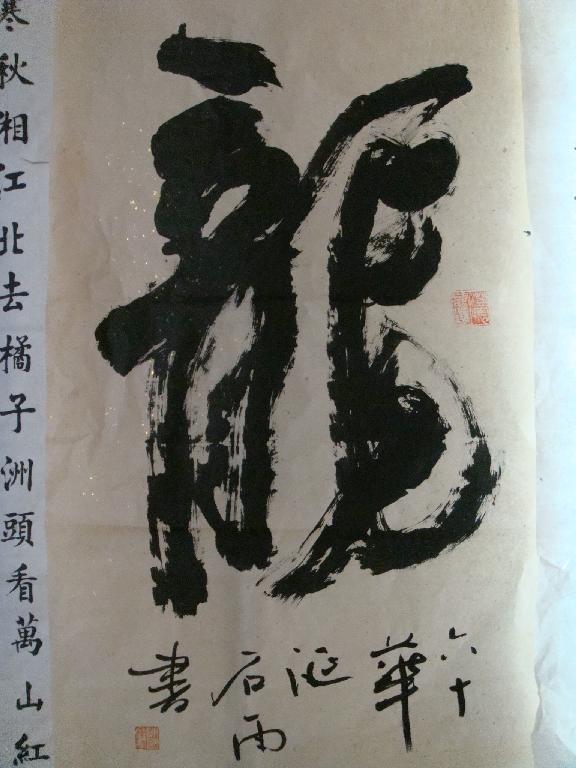 龍
六十
華
诞
石雨
書
寒秋湘江北去橘子洲頭看萬山紅